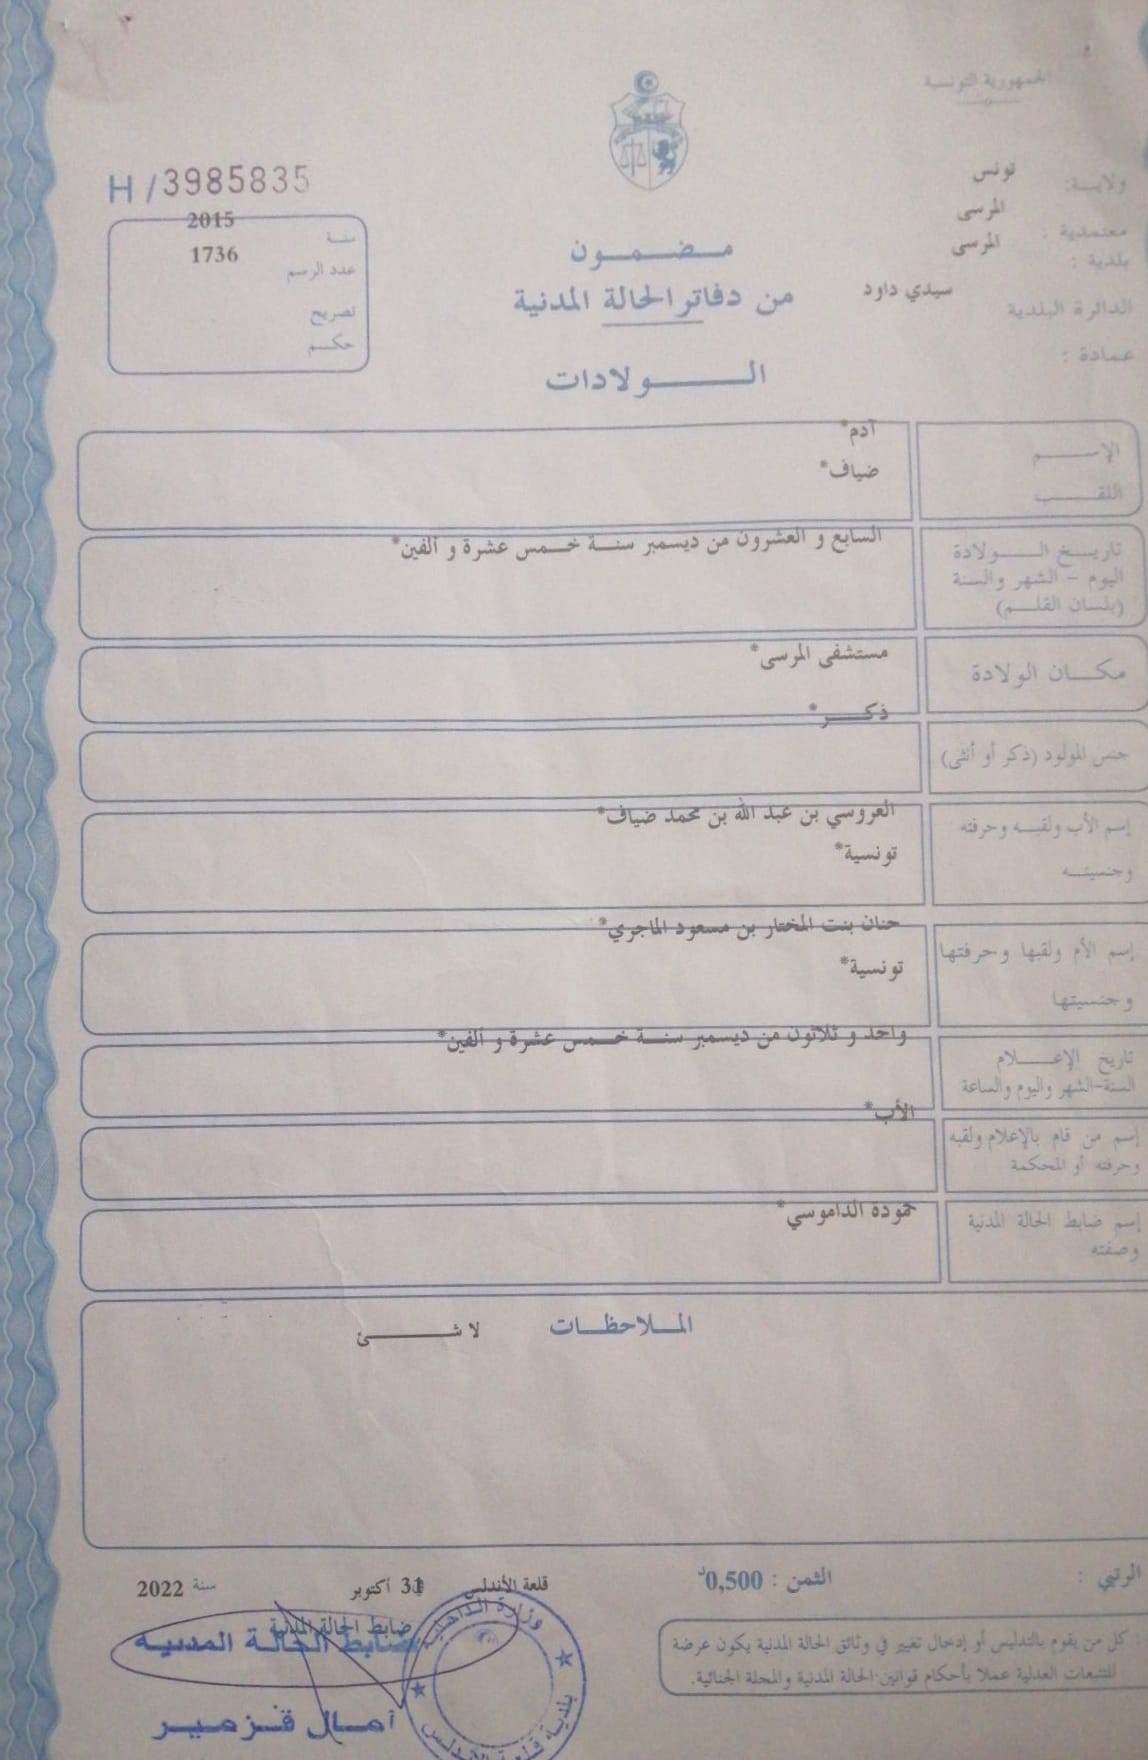 الجمهورية التونسية
ولاية: تونس
معتمدية : المرسى
بلدية : المرسى
الدائرة البلدية سيدي داود
عمادة :
مضمون
من دفاتر الحالة المدنية
الولادات
H / 3985835
سنة 2015
عدد الرسم 1736
تصريح
حكم
الإسم آدم*
اللقب ضياف*
تاريخ الولادة
اليوم - الشهر والسنة
(بلسان القلم)
السابع و العشرون من ديسمبر سنة خمس عشرة و ألفين*
مكان الولادة مستشفى المرسى*
جنس المولود (ذكر أو أنثى) ذكر*
إسم الأب ولقبه وحرفته
وجنسيته
العروسي بن عبد الله بن محمد ضياف*
تونسية*
إسم الأم ولقبها وحرفتها
وجنسيتها
حنان بنت المختار بن مسعود الماجري*
تونسية*
تاريخ الإعلام
السنة-الشهر واليوم والساعة
واحد و ثلاثون من ديسمبر سنة خمس عشرة و ألفين*
إسم من قام بالإعلام ولقبه
وحرفته أو المحكمة
الأب*
إسم ضابط الحالة المدنية
وصفته
حمودة الداموسي*
الملاحظات
لا شئ
الرتبي :
الثمن : 0,500د
قلعة الأندلس 31 أكتوبر سنة 2022
ضابط الحالة المدنية
ضابط الحالة المدنية
آمال قزمير
وزارة الداخلية
بلدية قلعة الأندلس
كل من يقوم بالتدليس أو إدخال تغيير في وثائق الحالة المدنية يكون عرضة
للتتبعات العدلية عملا بأحكام قوانين الحالة المدنية والمجلة الجنائية.